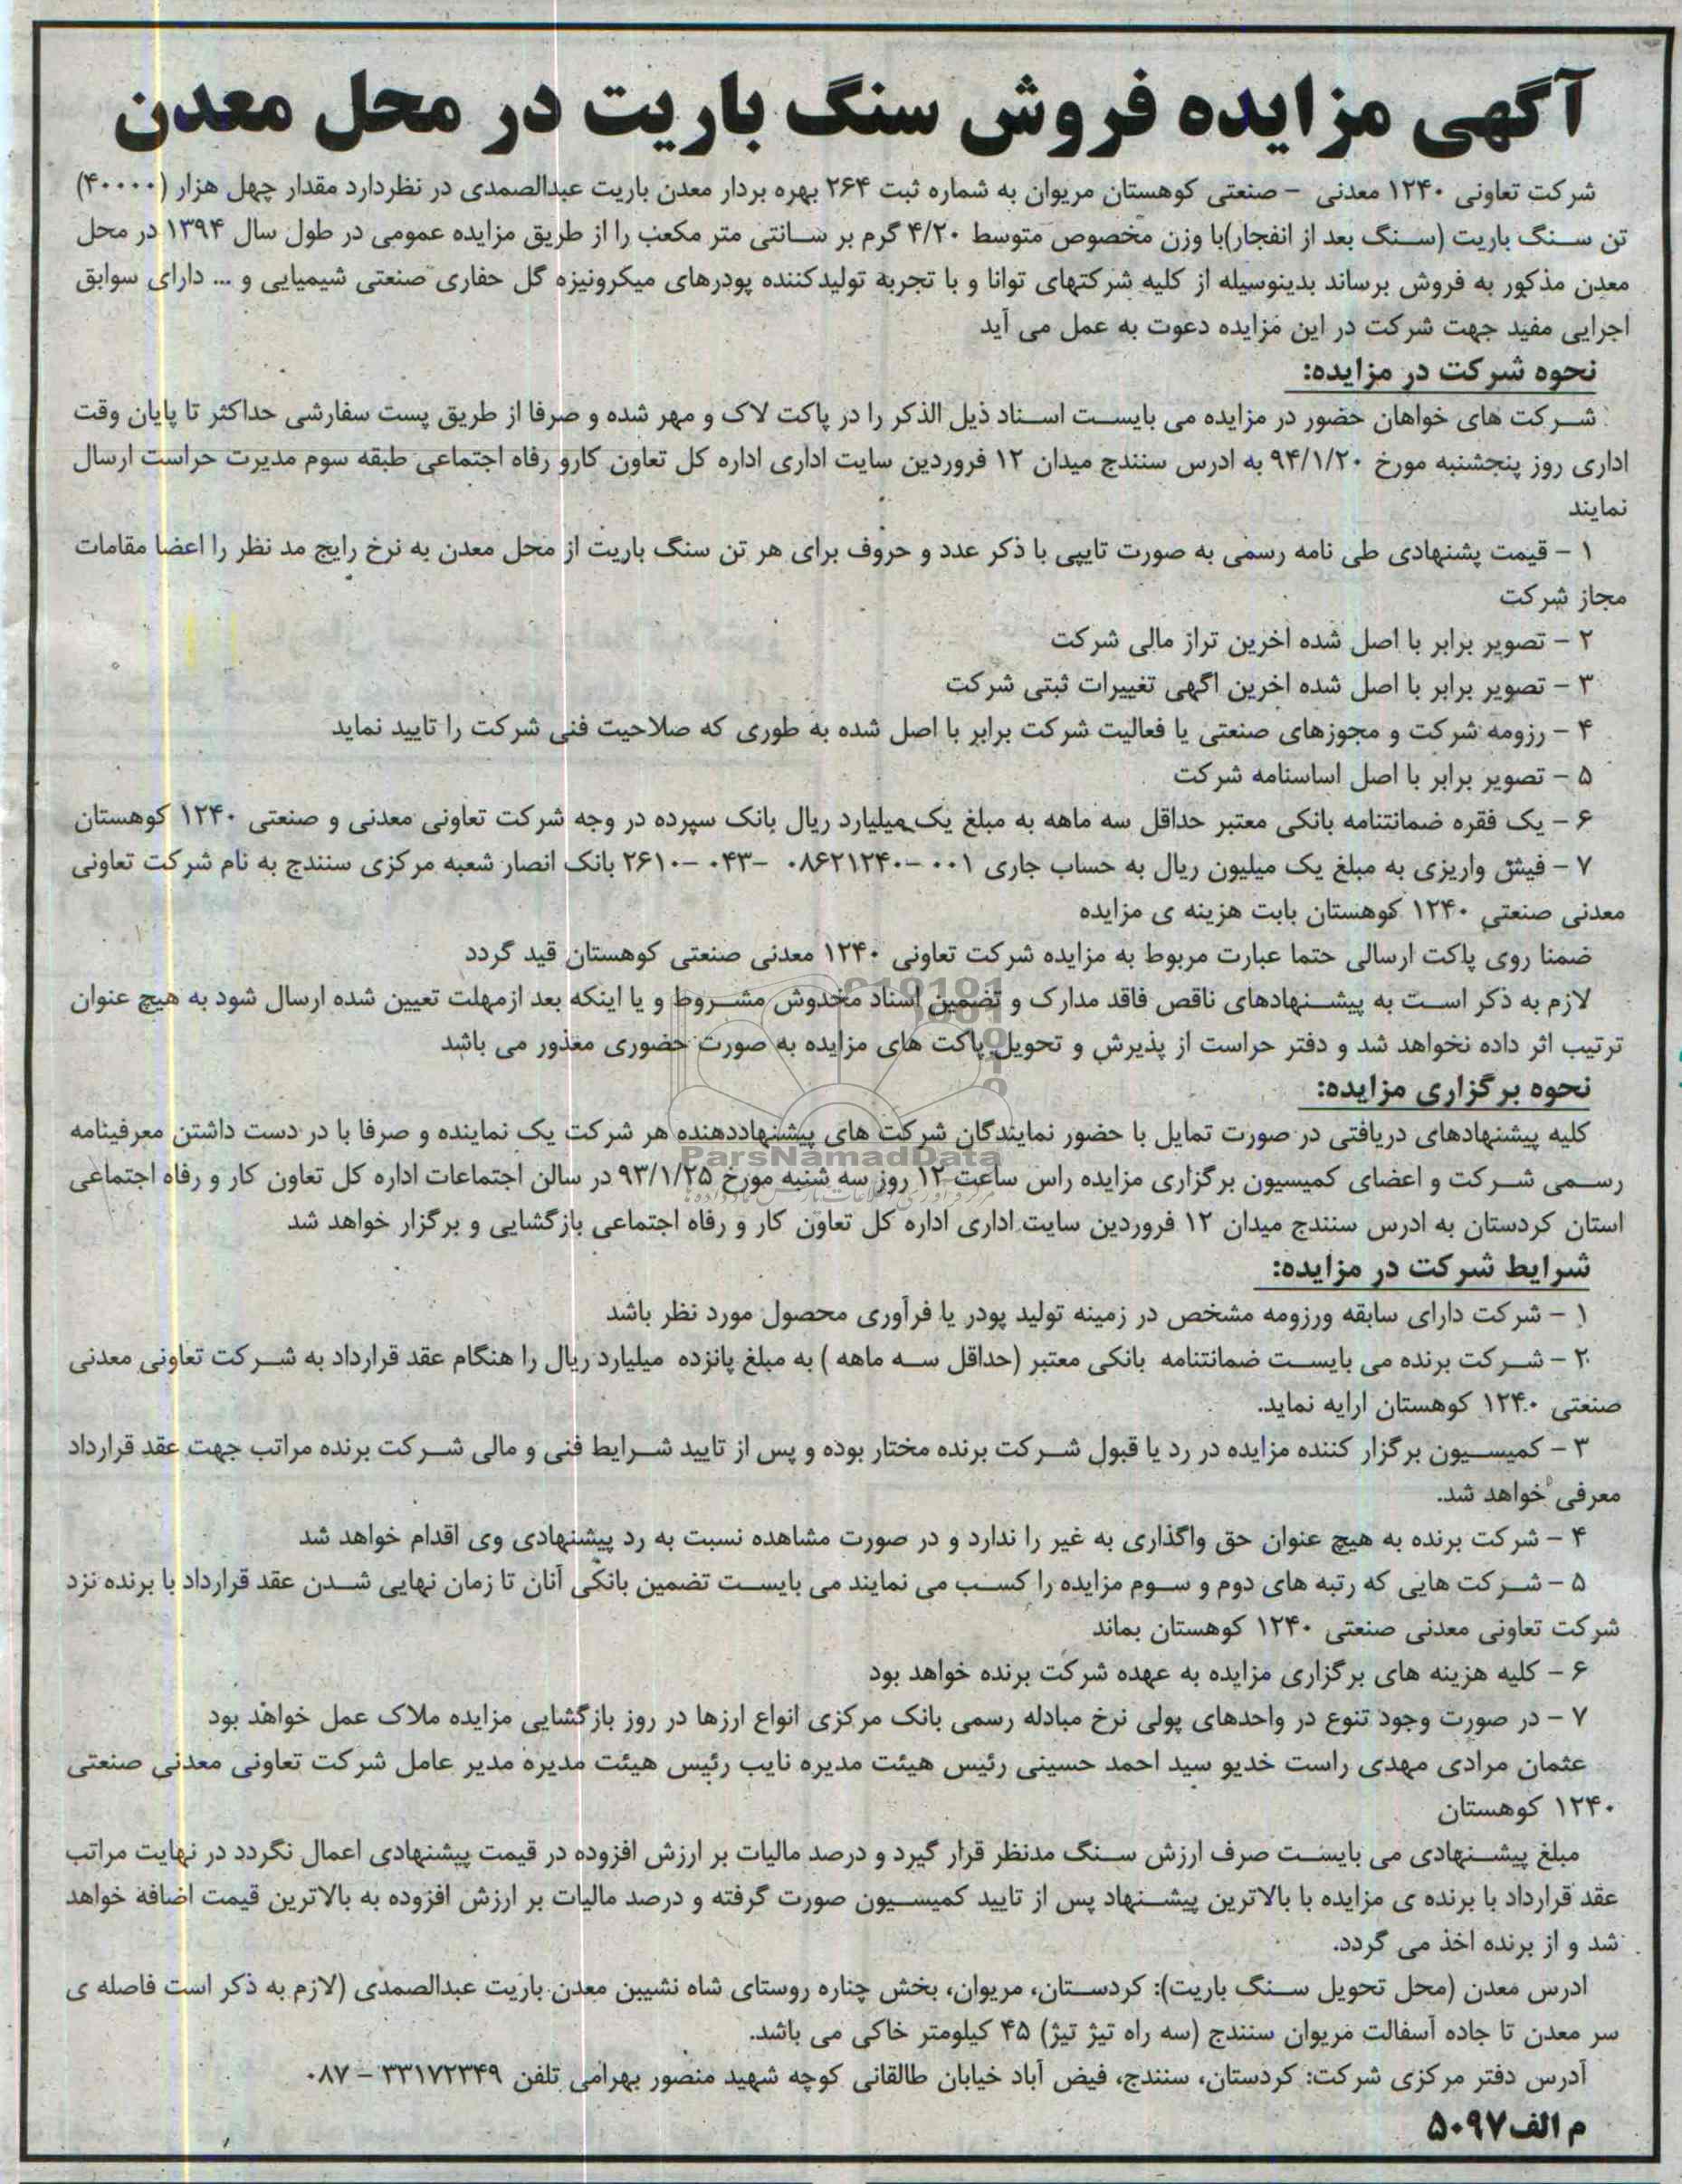 آگهی مزایده فروش سنگ باریت در محل معدن
شرکت تعاونی ۱۲۴۰ معدنی - صنعتی کوهستان مریوان به شماره ثبت ۲۶۴ بهره بردار معدن باریت عبدالصمدی در نظردارد مقدار چهل هزار (۴۰۰۰۰)
تن سنگ باریت (سنگ بعد از انفجار)با وزن مخصوص متوسط ۴/۲۰ گرم بر سانتی متر مکعب را از طریق مزایده عمومی در طول سال ۱۳۹۴ در محل
معدن مذکور به فروش برساند بدینوسیله از کلیه شرکتهای توانا و با تجربه تولیدکننده پودرهای میکرونیزه گل حفاری صنعتی شیمیایی و ... دارای سوابق
اجرایی مفید جهت شرکت در این مزایده دعوت به عمل می آید
نحوه شرکت در مزایده:
شرکت های خواهان حضور در مزایده می بایست اسناد ذیل الذکر را در پاکت لاک و مهر شده و صرفا از طریق پست سفارشی حداکثر تا پایان وقت
اداری روز پنجشنبه مورخ ۹۴/۱/۲۰ به ادرس سنندج میدان ۱۲ فروردین سایت اداری اداره کل تعاون کارو رفاه اجتماعی طبقه سوم مدیرت حراست ارسال
نمایند
۱ - قیمت پشنهادی طی نامه رسمی به صورت تایپی با ذکر عدد و حروف برای هر تن سنگ باریت از محل معدن به نرخ رایج مد نظر را اعضا مقامات
مجاز شرکت
۲ - تصویر برابر با اصل شده اخرین تراز مالی شرکت
۳ - تصویر برابر با اصل شده اخرین اگهی تغییرات ثبتی شرکت
۴ - رزومه شرکت و مجوزهای صنعتی یا فعالیت شرکت برابر با اصل شده به طوری که صلاحیت فنی شرکت را تایید نماید
۵ - تصویر برابر با اصل اساسنامه شرکت
۶ - یک فقره ضمانتنامه بانکی معتبر حداقل سه ماهه به مبلغ یک میلیارد ریال بانک سپرده در وجه شرکت تعاونی معدنی و صنعتی ۱۲۴۰ کوهستان
۷ - فیش واریزی به مبلغ یک میلیون ریال به حساب جاری ۰۰۱ -۰۸۶۲۱۲۴۰ -۰۴۳ -۲۶۱۰ بانک انصار شعبه مرکزی سنندج به نام شرکت تعاونی
معدنی صنعتی ۱۲۴۰ کوهستان بابت هزینه ی مزایده
ضمنا روی پاکت ارسالی حتما عبارت مربوط به مزایده شرکت تعاونی ۱۲۴۰ معدنی صنعتی کوهستان قید گردد
لازم به ذکر است به پیشنهادهای ناقص فاقد مدارک و تضمین اسناد مخدوش مشروط و یا اینکه بعد ازمهلت تعیین شده ارسال شود به هیچ عنوان
ترتیب اثر داده نخواهد شد و دفتر حراست از پذیرش و تحویل پاکت های مزایده به صورت حضوری معذور می باشد
نحوه برگزاری مزایده:
کلیه پیشنهادهای دریافتی در صورت تمایل با حضور نمایندگان شرکت های پیشنهاددهنده هر شرکت یک نماینده و صرفا با در دست داشتن معرفینامه
ParsNamadData
رسمی شرکت و اعضای کمیسیون برگزاری مزایده راس ساعت ۱۲ روز سه شنبه مورخ ۹۳/۱/۲۵ در سالن اجتماعات اداره کل تعاون کار و رفاه اجتماعی
استان کردستان به ادرس سنندج میدان ۱۲ فروردین سایت اداری اداره کل تعاون کار و رفاه اجتماعی بازگشایی و برگزار خواهد شد
شرایط شرکت در مزایده:
۱ - شرکت دارای سابقه ورزومه مشخص در زمینه تولید پودر یا فرآوری محصول مورد نظر باشد
۲ - شرکت برنده می بایست ضمانتنامه بانکی معتبر (حداقل سه ماهه ) به مبلغ پانزده میلیارد ریال را هنگام عقد قرارداد به شرکت تعاونی معدنی
صنعتی ۱۲۴۰ کوهستان ارایه نماید.
۳ - کمیسیون برگزار کننده مزایده در رد یا قبول شرکت برنده مختار بوده و پس از تایید شرایط فنی و مالی شرکت برنده مراتب جهت عقد قرارداد
معرفی خواهد شد.
۴ - شرکت برنده به هیچ عنوان حق واگذاری به غیر را ندارد و در صورت مشاهده نسبت به رد پیشنهادی وی اقدام خواهد شد
۵ - شرکت هایی که رتبه های دوم و سوم مزایده را کسب می نمایند می بایست تضمین بانکی آنان تا زمان نهایی شدن عقد قرارداد با برنده نزد
شرکت تعاونی معدنی صنعتی ۱۲۴۰ کوهستان بماند
۶ - کلیه هزینه های برگزاری مزایده به عهده شرکت برنده خواهد بود
۷ - در صورت وجود تنوع در واحدهای پولی نرخ مبادله رسمی بانک مرکزی انواع ارزها در روز بازگشایی مزایده ملاک عمل خواهد بود
عثمان مرادی مهدی راست خدیو سید احمد حسینی رئیس هیئت مدیره نایب رئیس هیئت مدیره مدیر عامل شرکت تعاونی معدنی صنعتی
۱۲۴۰ کوهستان
مبلغ پیشنهادی می بایست صرف ارزش سنگ مدنظر قرار گیرد و درصد مالیات بر ارزش افزوده در قیمت پیشنهادی اعمال نگردد در نهایت مراتب
عقد قرارداد با برنده ی مزایده با بالاترین پیشنهاد پس از تایید کمیسیون صورت گرفته و درصد مالیات بر ارزش افزوده به بالاترین قیمت اضافه خواهد
شد و از برنده اخذ می گردد.
ادرس معدن (محل تحویل سنگ باریت): کردستان، مریوان، بخش چناره روستای شاه نشیین معدن باریت عبدالصمدی (لازم به ذکر است فاصله ی
سر معدن تا جاده آسفالت مریوان سنندج (سه راه تیژ تیژ) ۴۵ کیلومتر خاکی می باشد.
آدرس دفتر مرکزی شرکت: کردستان، سنندج، فیض آباد خیابان طالقانی کوچه شهید منصور بهرامی تلفن ۳۳۱۷۲۳۴۹ - ۰۸۷
م الف۵۰۹۷